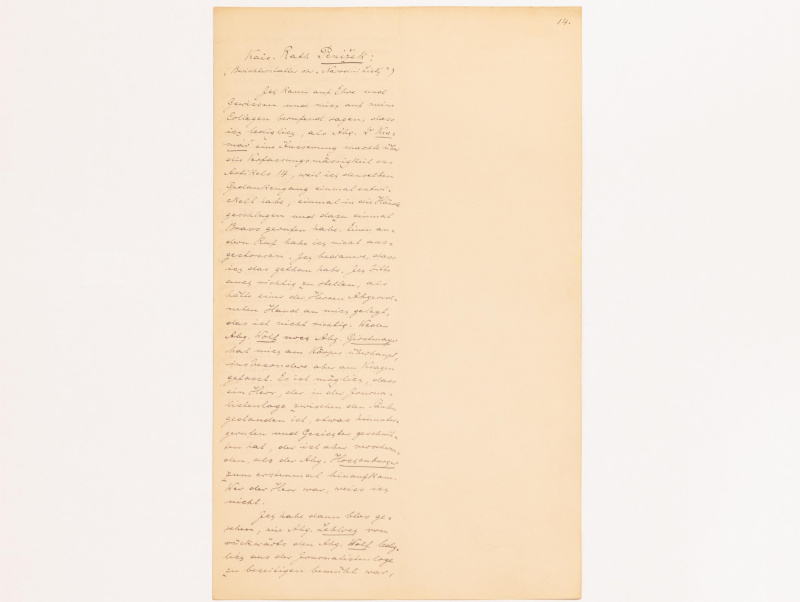 14.
Kais. Rath Penižek:
(Berichterstatter der „Narodni Listy")
Ich kann auf Ehre und
Gewissen und mich auf meine
Collegen berufend sagen, dass
ich lediglich, als Abg. Dr Kra-
mář eine Äusserung machte über
die Verfassungsmässigkeit des
Artikels 14, weil ich denselben
Gedankengang einmal entwi-
ckelt habe, einmal in die Hände
geschlagen und dazu einmal
Bravo gerufen habe. Einen an-
dern Ruf habe ich nicht aus-
gestossen. Ich bedaure, dass
ich das gethan habe. Ich bitte
auch richtig zu stellen, als
hätte einer der Herren Abgeord-
neten Hand an mich gelegt,
das ist nicht richtig. Weder
Abg. Wolf noch Abg. Girstmayr
hat mich am Körper überhaupt,
insbesondere aber am Kragen
gefasst. Es ist möglich, dass
ein Herr, der in der Journa-
listenloge zwischen den
gestanden ist, etwas hinunter-
gerufen und Gesichter geschnit-
ten hat, der ist aber verschwun-
den, als der Abg. Hochenburger
zum erstenmal hinaufkam.
Wer der Herr war, weiss ich
nicht.
Ich habe dann blos ge-
sehen, wie Abg. von
rückwärts den Abg. Wolf ledig-
lich aus der Journalistenloge
zu beseitigen bemüht war,